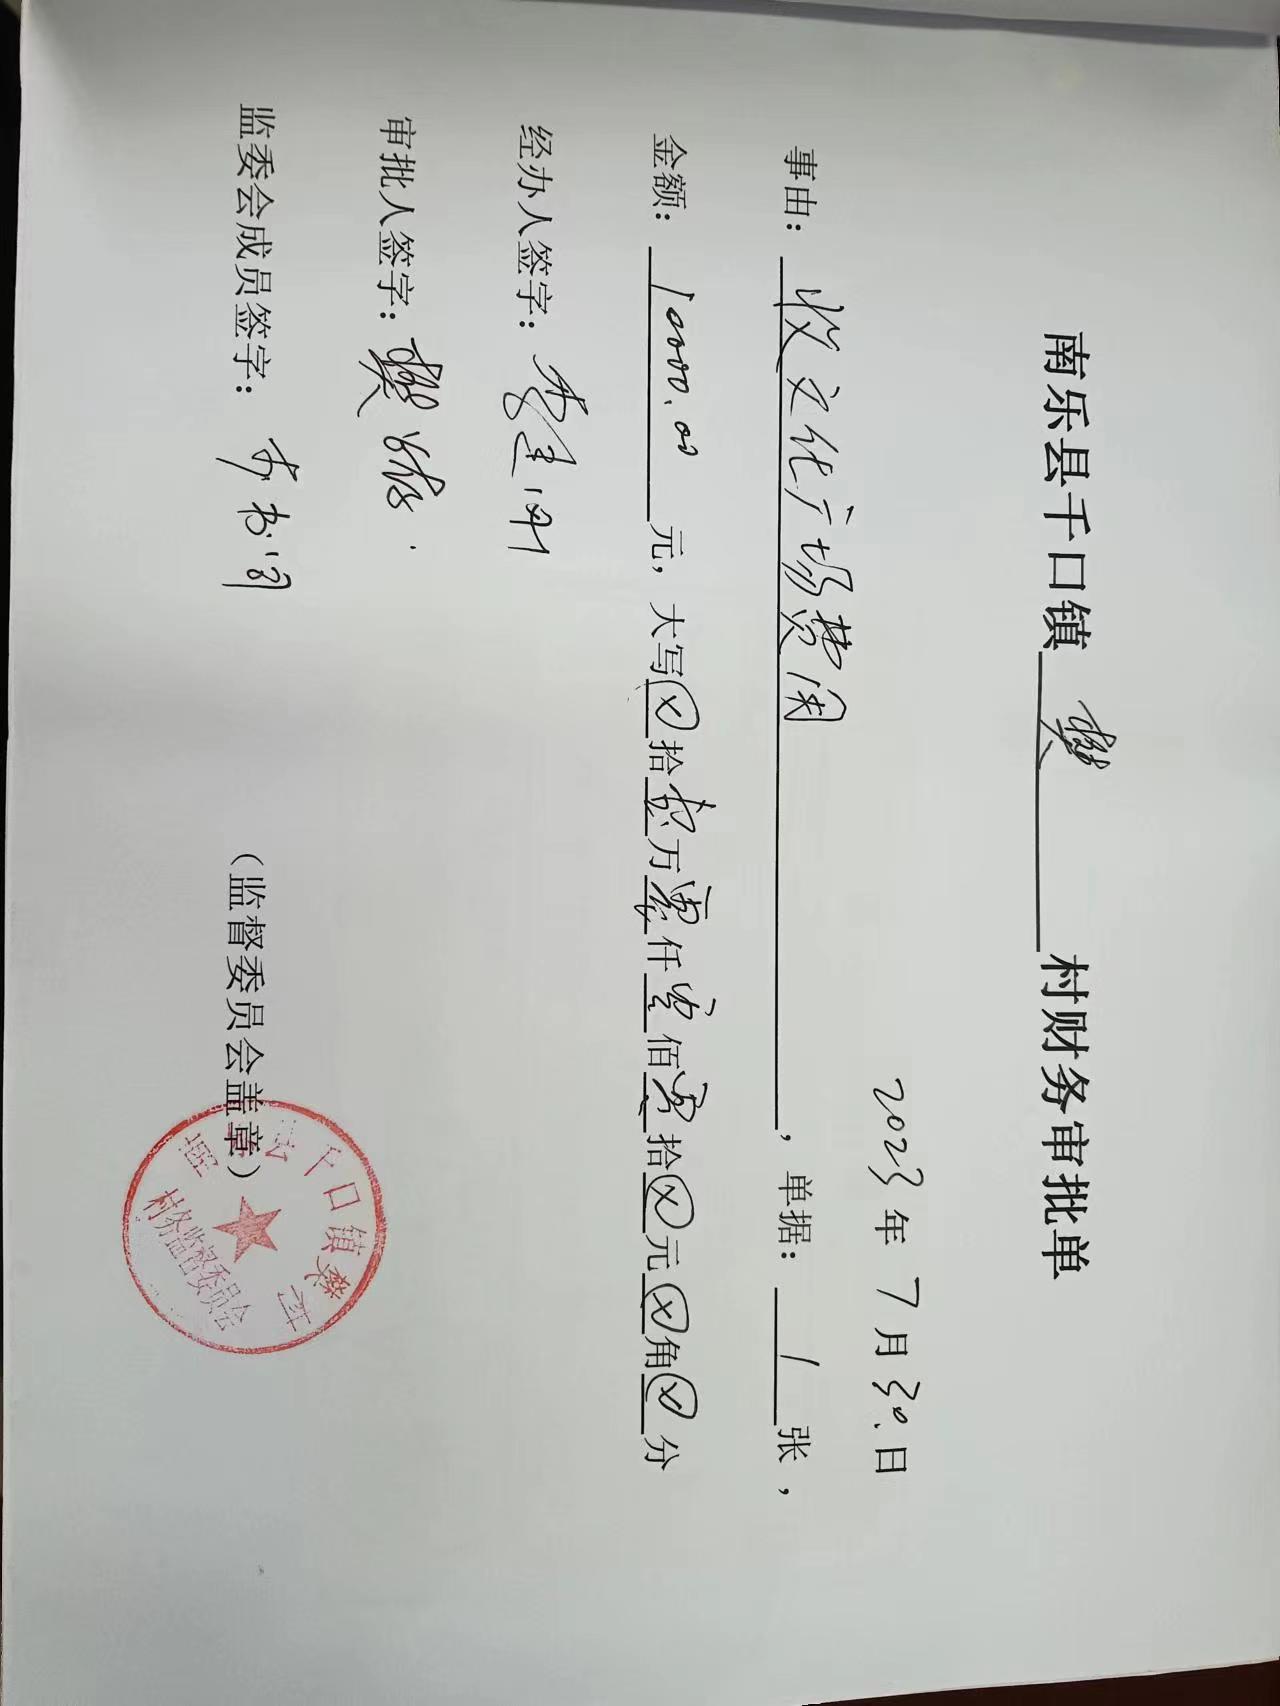 南乐县千口镇 樊 村财务审批单
2023年7月30.日
事由：收文化广场费用，单据：1张，
金额：10000.00元，大写ⓧ拾壹万零仟零佰零拾ⓧ元ⓧ角ⓧ分
经办人签字：李建
审批人签字：樊
监委会成员签字：
（监督委员会盖章）
县千口镇樊村
村务监督委员会